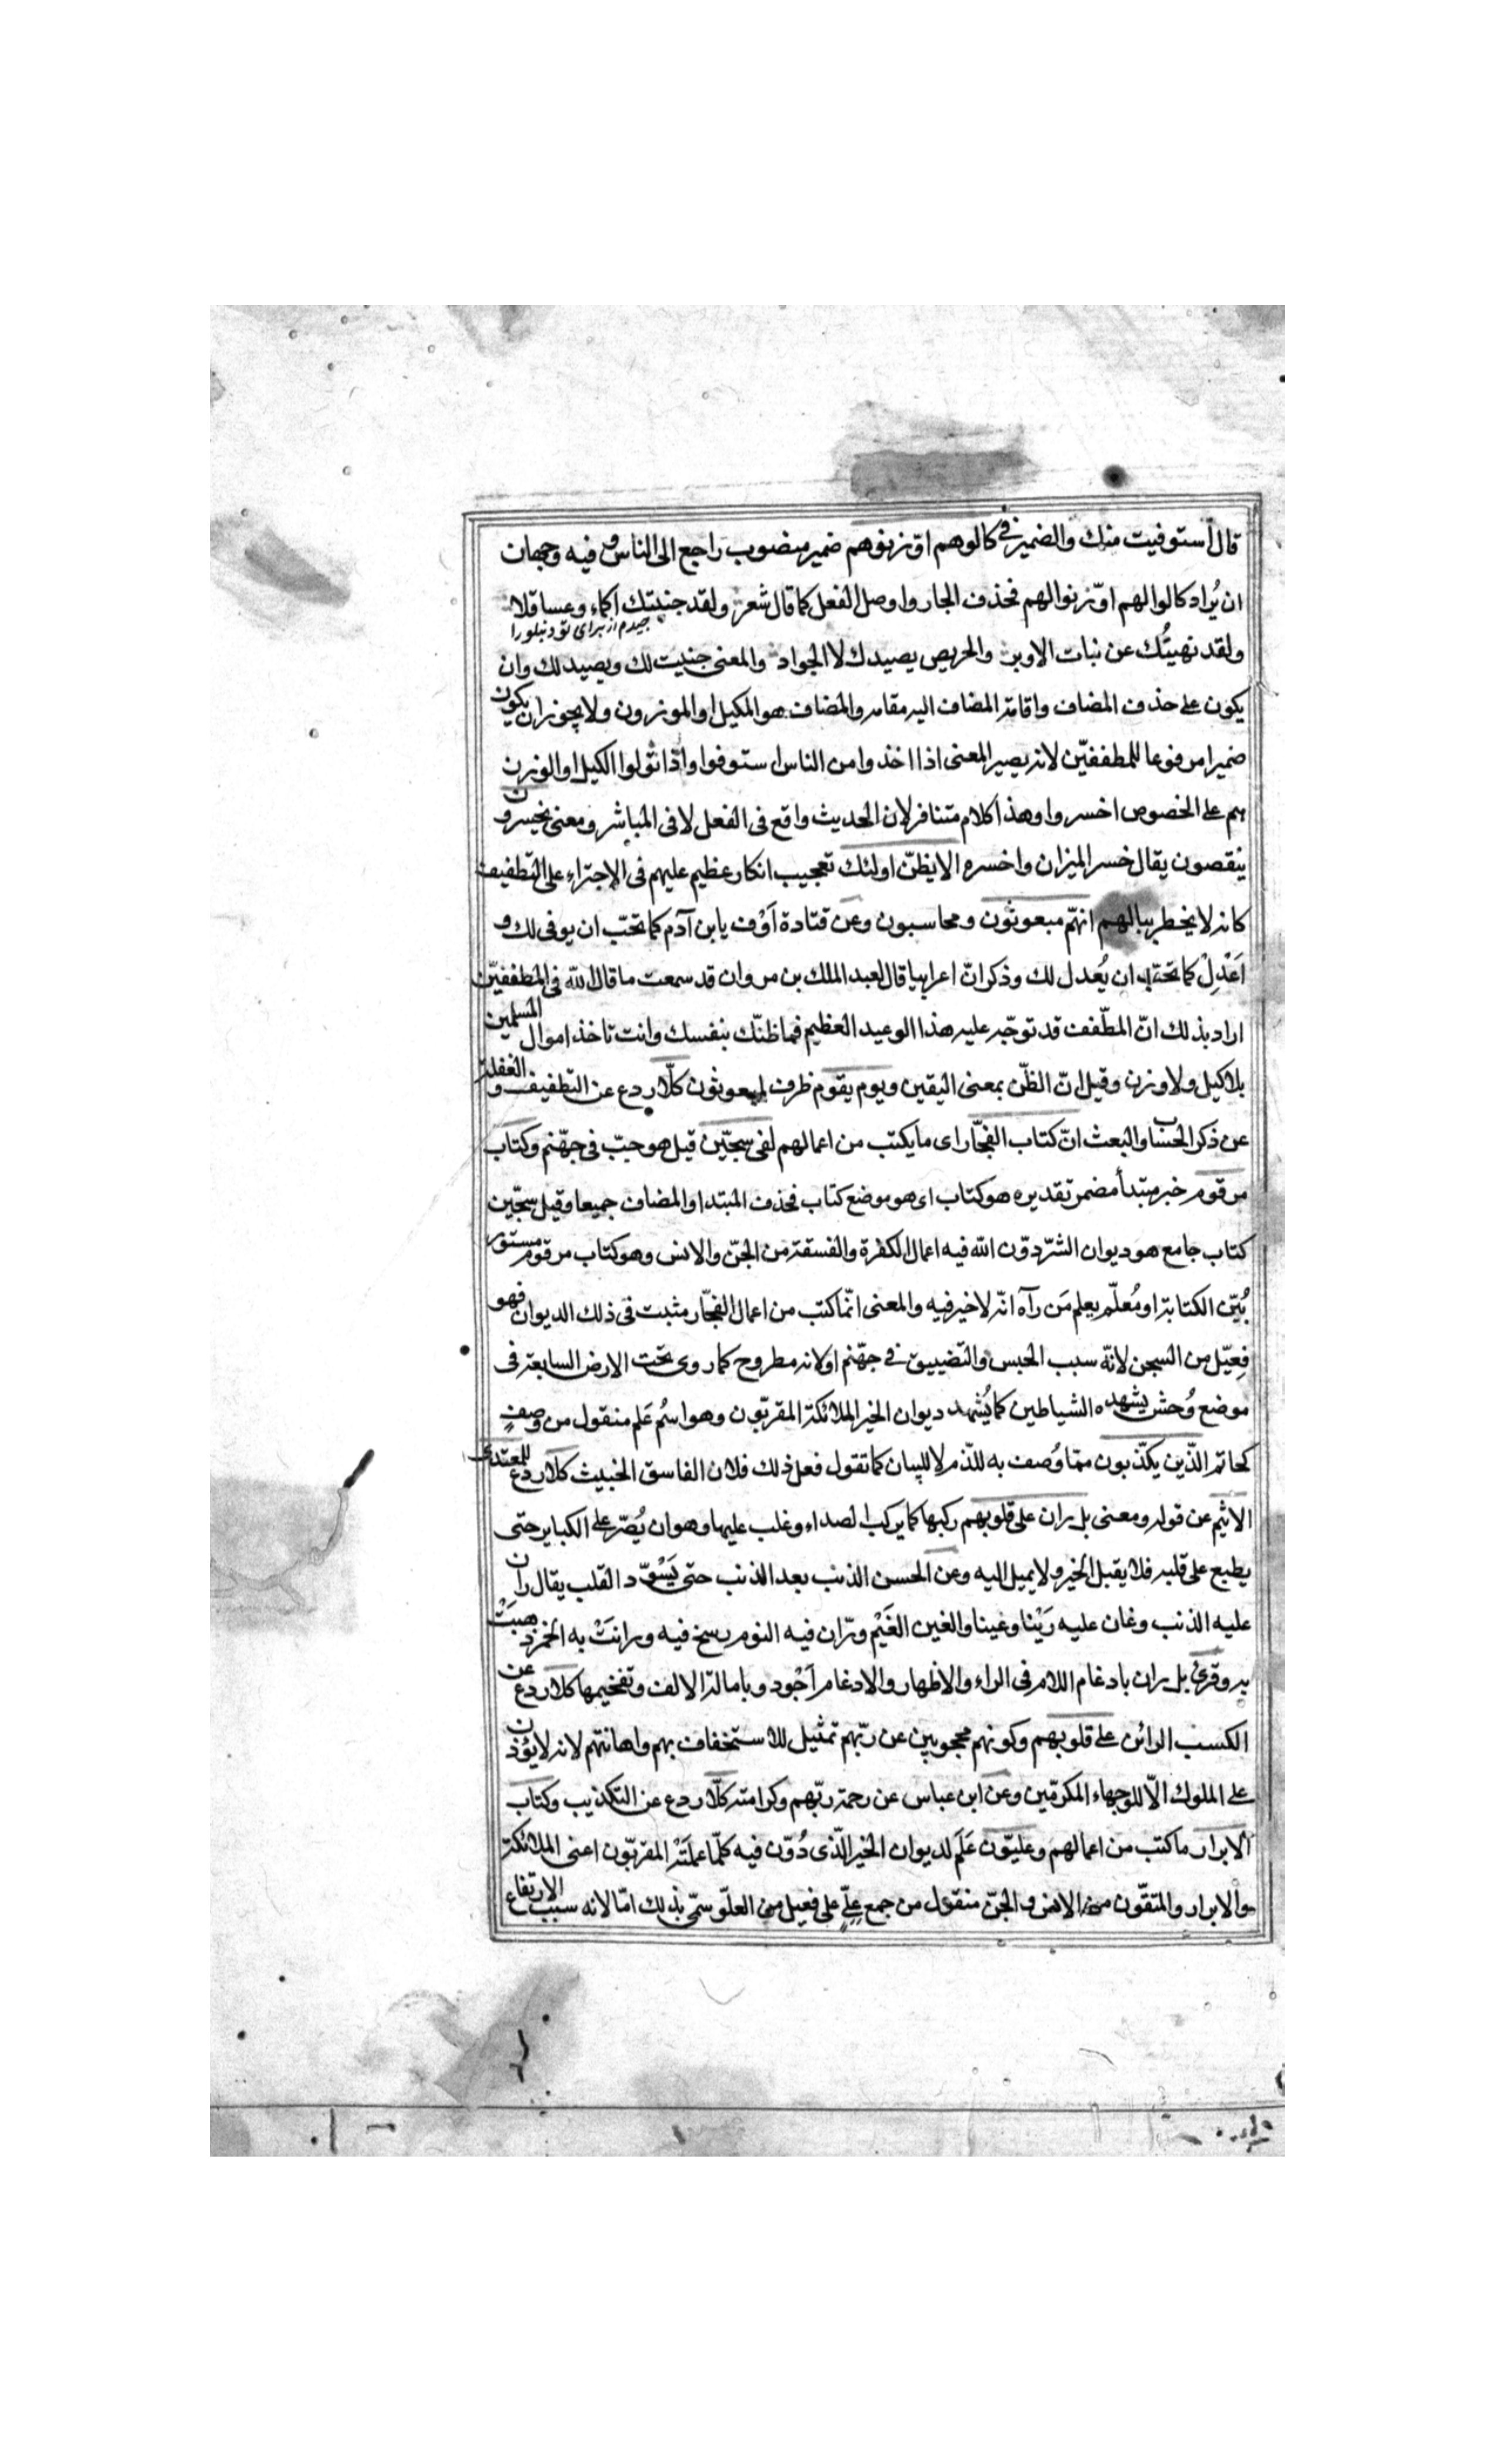 قال استوفيت منك والضمير فى كالوهم او زنوهم ضمير منصوب راجع الى الناس و فيه وجهان
ان يُراد كالوا لهم او زنوا لهم فحذف الجار واوصل الفعل كما قال شعر ولقد جنيتك اكماء وعساقلا
ولقد نهيتُك عن نبات الاوبر والحريص يصيدك لا الجواد والمعنى جنيت لك ويصيد لك وان
يكون على حذف المضاف واقامة المضاف اليه مقامه والمضاف هو المكيل او الموزون ولا يجوز ان يكون
ضميرا مرفوعا للمطففيّن لانه يصير المعنى اذا اخذوا من الناس استوفوا واذا تولوا الكيل او الوزن
هم على الخصوص اخسروا وهذا كلام متنافر لان الحديث واقع فى الفعل لا فى المباشر ومعنى يخسرون
ينقصون يقال خسر الميزان واخسره الا يظنّ اولئك تعجيب انكار عظيم عليهم فى الاجتراء على التطفيف
كانه لا يخطر ببالهم انهّم مبعوثون ومحاسبون وعن قتادة اَوْف يا بن آدم كما تحبّ ان يوفى لك و
اَعْدِلْ كما تحبّ ان يُعدل لك وذكر انّ اعرابيا قال لعبد الملك بن مروان قد سمعت ما قال الله فى المطففيّن
اراد بذلك انّ المطّفف قد توجّه عليه هذا الوعيد العظيم فما ظنّك بنفسك وانت تاخذ اموال المسلمين
بلا كيل ولا وزن وقيل انّ الظّن بمعنى اليقين ويوم يقوم ظرف لمبعوثون كلّا ردع عن التطفيف و الغفلة
عن ذكر الحساب والبعث انّ كتاب الفجّار اى ما يكتب من اعمالهم لفى سجّين قيل هو جبّ فى جهّنم وكتاب
مرقوم خبر مبتدأ مضمر تقديره هو كتاب اى هو موضع كتاب فحذف المبتدا والمضاف جميعا وقيل سجّين
كتاب جامع هو ديوان الشرّ دوّن الله فيه اعمال الكفرة والفسقة من الجنّ والانس وهو كتاب مرقوم مستور
بُيّن الكتابة او مُعلّم يعلم مَن رآه انّه لا خير فيه والمعنى انّما كتب من اعمال الفجّار مثبت فى ذلك الديوان فهو
فِعيّل من السجن لانّه سبب الحبس والتضييق فى جهّنم او لانه مطروح كما روى تحت الارض السابعة فى
موضع وُحش يشهده الشياطين كما يُشهد ديوان الخير الملائكة المقربّون وهو اسُم عَلم منقول من وصفٍ
كحاتم الذّين يكذّبون ممّا وُصف به للذّم لا للبيان كما تقول فعل ذلك فلان الفاسق الخبيث كلا ردع للمعتدى
الاثيم عن قوله ومعنى بل ران على قلوبهم ركبها كما يركب الصداء وغلب عليها وهو ان يُصّر على الكباير حتى
يطبع على قلبه فلا يقبل الخير ولا يميل اليه وعن الحسن الذنب بعد الذنب حتى يَسْودّ القلب يقال ران
عليه الذنب وغان عليه رَيْنا وغينا والغين الغَيْم ورّان فيه النوم رسخ فيه ورانتْ به الخمر ذهبَتْ
به وقرئ بل ران بادغام اللام فى الراء والاظهار والادغام اَجْود وبامالة الالف وتفخيمها كلا ردع عن
الكسب الرائن على قلوبهم وكونهم محجوبين عن ربّهم تمثيل للاستخفاف بهم واهانتهم لانه لا يؤذن
على الملوك الّا للوجهاء المكرمّين وعن ابن عباس عن رحمة ربّهم وكرامته كلّا ردع عن التكذيب وكتاب
الابرار ما كتب من اعمالهم وعليّون عَلَم لديوان الخير الّذى دُوّن فيه كلّما عملَتْه المقربّون اعنى الملائكة
والابرار والمتقّون من الانس و الجنّ منقول من جمع عِلّىّ على فعيل من العلّو سمّى بذلك امّا لانه سبب الارتفاع